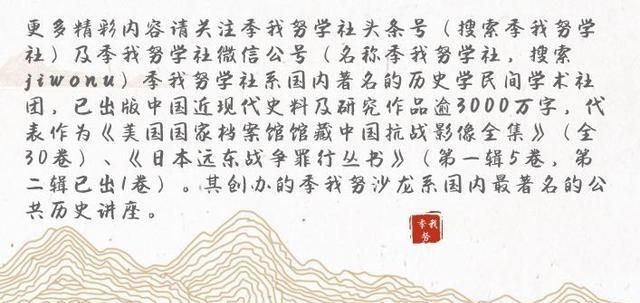 更多精彩内容请关注季我努学社头条号（搜索季我努学
社）及季我努学社微信公号（名称季我努学社，搜索
jiwonu）季我努学社系国内著名的历史学民间学术社
团，已出版中国近现代史料及研究作品逾3000万字，代
表作为《美国国家档案馆馆藏中国抗战影像全集》（全
30卷）、《日本远东战争罪行丛书》（第一辑5卷，第
二辑已出1卷）。其创办的季我努沙龙系国内最著名的公
共历史讲座。
季我
努